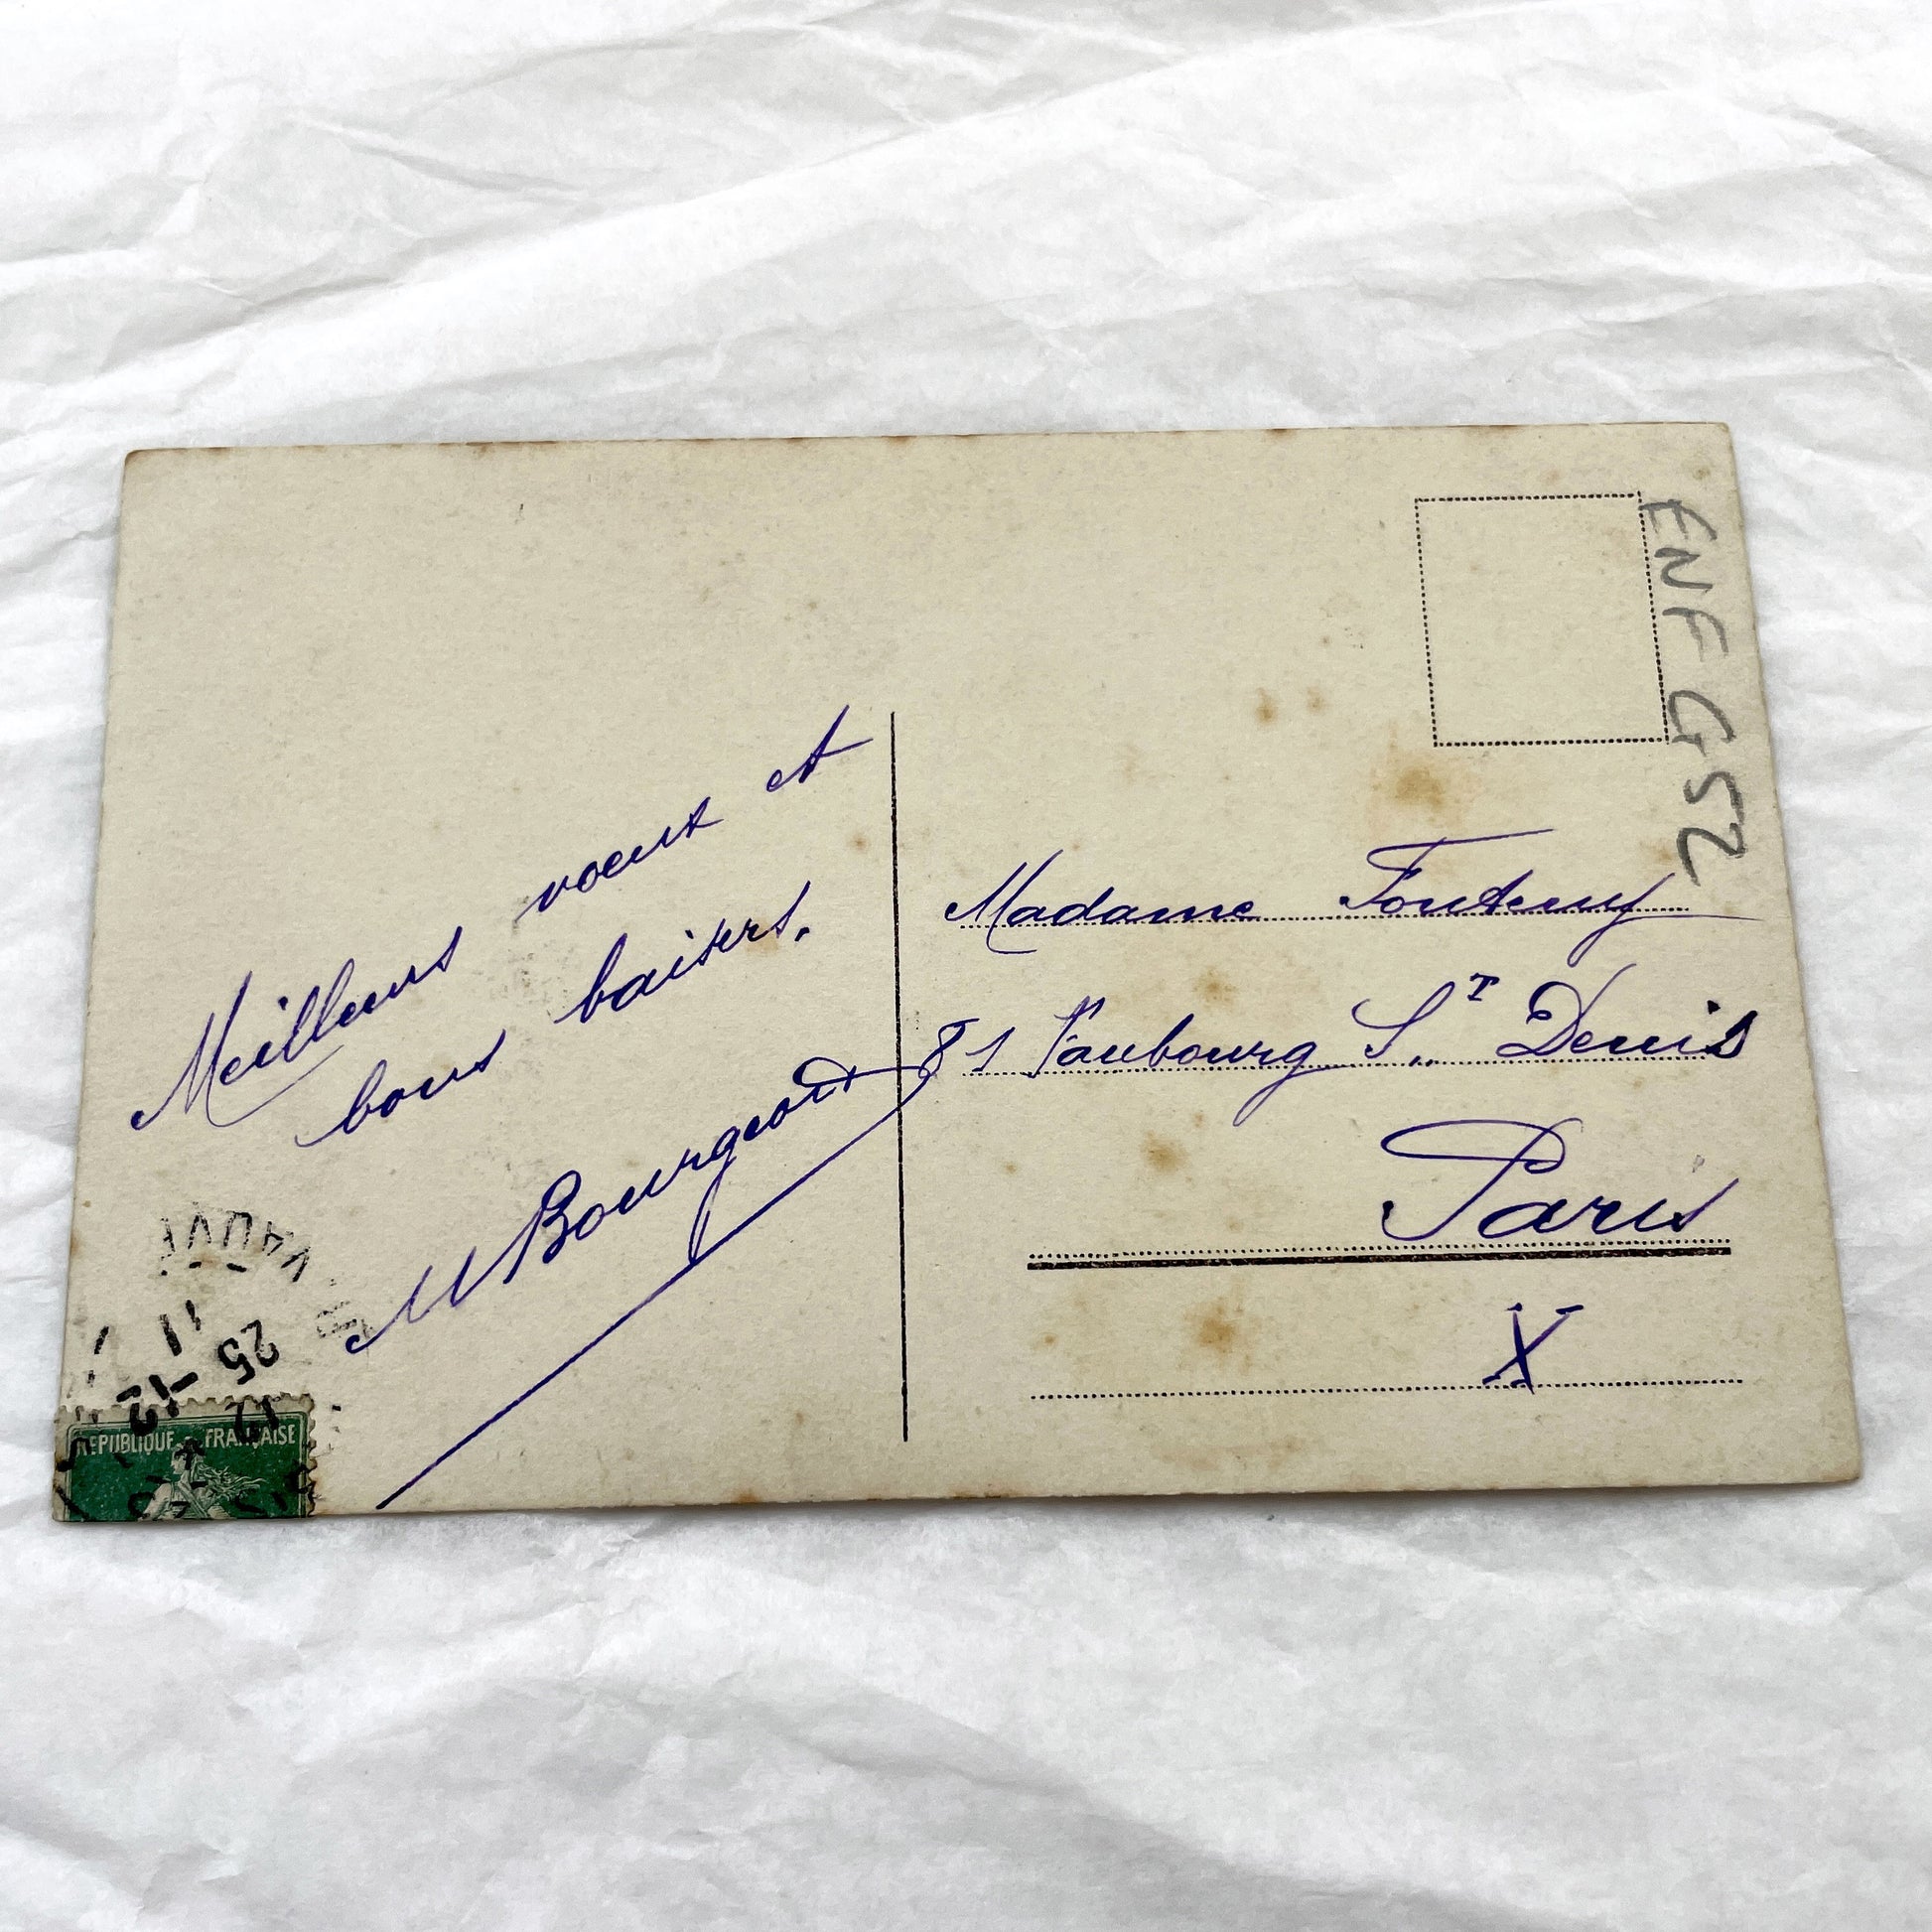 Meilleurs voeux et
bons baisers.
M Bourgeois
Madame Fontenoy
81 Faubourg S.T Denis
Paris
X
ENF G52
25
11
12
REPUBLIQUE FRANÇAISE